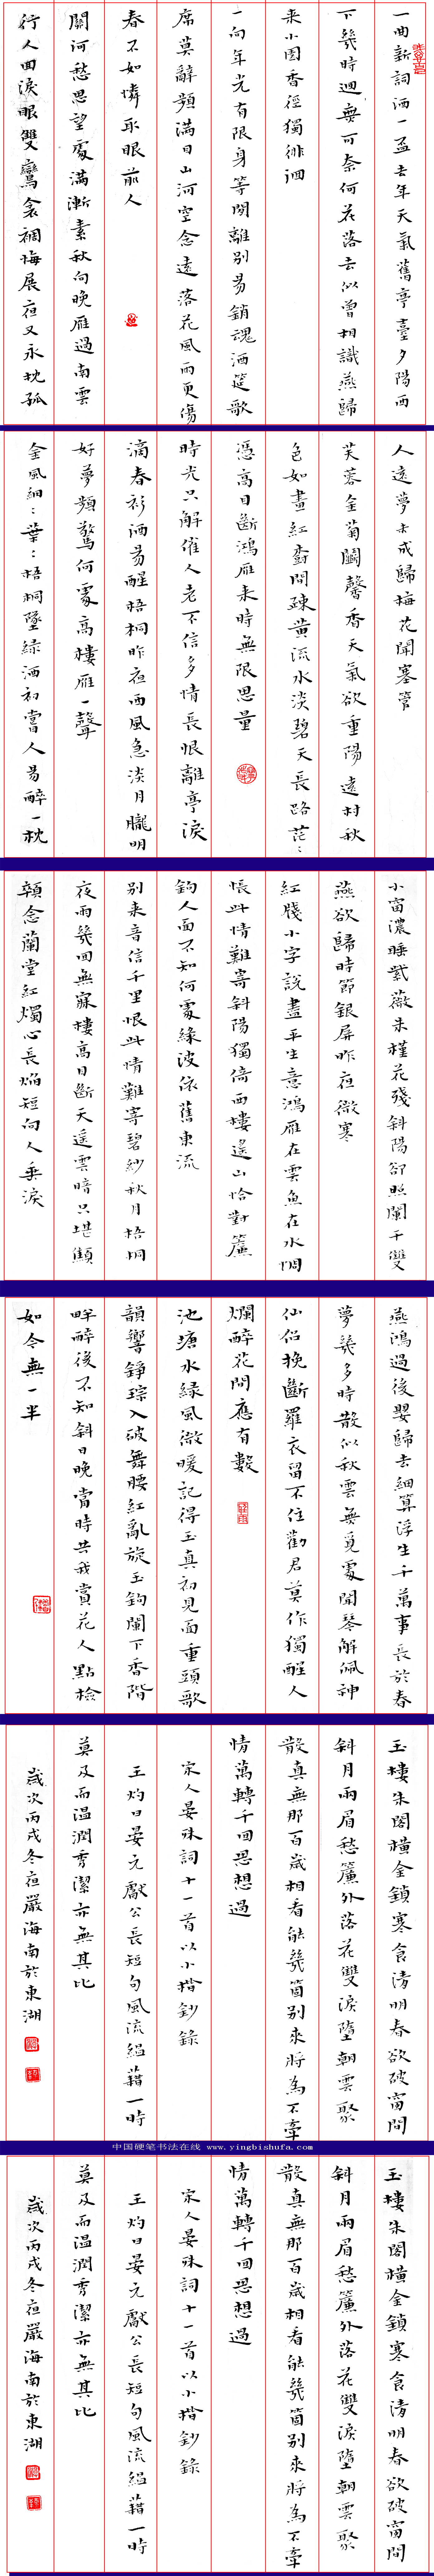 一曲新詞酒一盃去年天氣舊亭臺夕陽西
下幾時迴無可奈何花落去似曾相識燕歸
来小園香徑獨徘徊
一向年光有限身等閒離別易銷魂酒筵歌
席莫辭頻滿目山河空念遠落花風雨更傷
春不如憐取眼前人
關河愁思望處滿漸素秋向晚雁過南雲
行人回淚眼雙鸞衾裯悔展夜又永枕孤
人遠夢未成歸梅花聞塞管
芙蓉金菊鬭馨香天氣欲重陽遠村秋
色如畫紅樹間疎黃流水淡碧天長路茫：
憑高目斷鴻雁来時無限思量
時光只解催人老不信多情長恨離亭淚
滴春衫酒易醒梧桐昨夜西風急淡月朧明
好夢頻驚何處高樓雁一聲
金風細：葉：梧桐墜綠酒初嘗人易醉一枕
小窗濃睡紫薇朱槿花殘斜陽卻照闌干雙
燕欲歸時節銀屏昨夜微寒
紅牋小字說盡平生意鴻雁在雲魚在水惆
悵此情難寄斜陽獨倚西樓遙山恰對簾
鉤人面不知何處綠波依舊東流
別来音信千里恨此情難寄碧紗秋月梧桐
夜雨幾回無寐樓高目斷天遙雲暗只堪顦
顇念蘭堂紅燭心長焰短向人垂淚
燕鴻過後嬰歸去細算浮生千萬事長於春
夢幾多時散似秋雲無覓處聞琴解佩神
仙侶挽斷羅衣留不住勸君莫作獨醒人
爛醉花間應有數
池塘水綠風微暖記得玉真初見面重頭歌
韻響錚琮入破舞腰紅亂旋玉鉤闌下香階
畔醉後不知斜日晚當時共我賞花人點檢
如今無一半
玉樓朱閣橫金鎖寒食清明春欲破窗間
斜月兩眉愁簾外落花雙淚墮朝雲聚
散真無那百歲相看能幾箇別來將為不牽
情萬轉千回思想過
宋人晏殊詞十一首以小楷鈔錄
王灼曰晏元獻公長短句風流縕藉一時
莫及而温潤秀潔亦無其比
歲次丙戌冬夜嚴海南於東湖
中国硬笔书法在线 www.yingbishufa.com
玉樓朱閣橫金鎖寒食清明春欲破窗間
斜月兩眉愁簾外落花雙淚墮朝雲聚
散真無那百歲相看能幾箇別來將為不牽
情萬轉千回思想過
宋人晏殊詞十一首以小楷鈔錄
王灼曰晏元獻公長短句風流縕藉一時
莫及而温潤秀潔亦無其比
歲次丙戌冬夜嚴海南於東湖